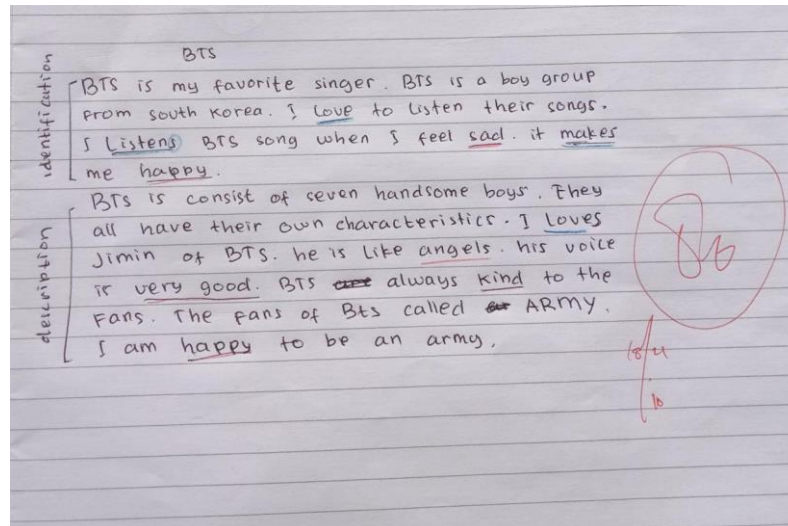 BTS
identification
BTS is my favorite singer. BTS is a boy group
from south Korea. I Love to Listen their songs.
I Listens BTS song when I feel sad. it makes
me happy.
description
BTS is consist of seven handsome boys. They
all have their own characteristics. I Loves
Jimin of BTS. he is Like angels. his voice
is very good. BTS always kind to the
Fans. The fans of Bts called ARMY.
I am happy to be an army.